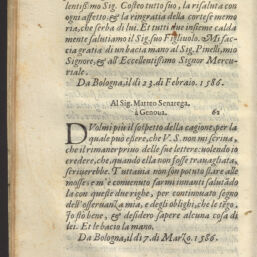 lentissimo Sig. Costeo tutto suo, la risaluta con
ogni affetto, & la ringratia della cortese memo
ria, che serba di lui. Et tutti due insieme calda
mente salutiamo il Sig. suo Figliuolo. Mi fac-
cia gratia di un bacia mano al Sig. Pinelli, mio
Signore, & all'Eccellentissimo Signor Mercu-
riale.
Da Bologna, il dì 23. di Febraio. 1586.
Al Sig. Matteo Senarega.
à Genova. 62
DVolmi più il sospetto della cagione, per la
quale può essere, che V. S. non mi scriva,
che il rimaner privo delle sue lettere: volendo io
credere, che, quando ella non fosse travagliata,
scriverebbe. Tuttavia non son potuto stare alle
mosse: e m'è convenuto farmi innanti salutādo
la con queste due righe, per continuato segno
dell'osservanza mia, e degli oblighi, che le tēgo.
Io stò bene, & desidero sapere alcuna cosa di
lei. Et le bacio la mano.
Da Bologna, il dì 7. di Marzo. 1586.